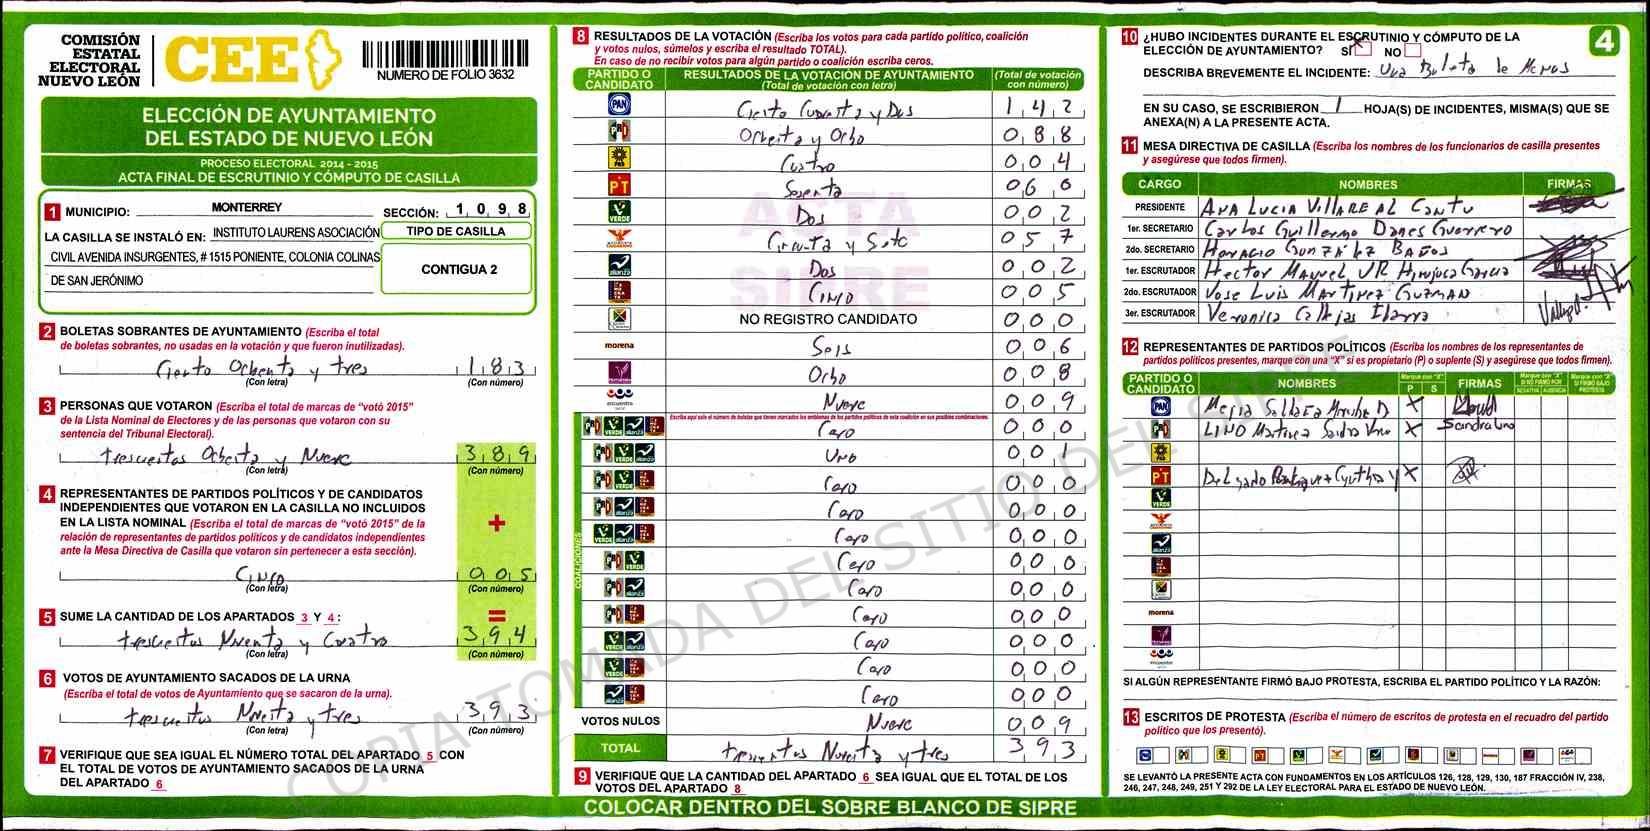 COMISIÓN
ESTATAL
ELECTORAL
NUEVO LEÓN
CEE
NUMERO DE FOLIO 3632
ELECCIÓN DE AYUNTAMIENTO
DEL ESTADO DE NUEVO LEÓN
PROCESO ELECTORAL 2014 - 2015
ACTA FINAL DE ESCRUTINIO Y CÓMPUTO DE CASILLA
1 MUNICIPIO: MONTERREY SECCIÓN: 1 0 9 8
LA CASILLA SE INSTALÓ EN: INSTITUTO LAURENS ASOCIACIÓN
CIVIL AVENIDA INSURGENTES, # 1515 PONIENTE, COLONIA COLINAS
DE SAN JERÓNIMO
TIPO DE CASILLA
CONTIGUA 2
2 BOLETAS SOBRANTES DE AYUNTAMIENTO (Escriba el total
de boletas sobrantes, no usadas en la votación y que fueron inutilizadas).
Ciento Ochenta y tres 1 8 3
(Con letra) (Con número)
3 PERSONAS QUE VOTARON (Escriba el total de marcas de "votó 2015"
de la Lista Nominal de Electores y de las personas que votaron con su
sentencia del Tribunal Electoral).
trescientos Ochenta y Nueve 3 8 9
(Con letra) (Con número)
4 REPRESENTANTES DE PARTIDOS POLÍTICOS Y DE CANDIDATOS
INDEPENDIENTES QUE VOTARON EN LA CASILLA NO INCLUIDOS
EN LA LISTA NOMINAL (Escriba el total de marcas de "votó 2015" de la
relación de representantes de partidos políticos y de candidatos independientes
ante la Mesa Directiva de Casilla que votaron sin pertenecer a esta sección).
+
Cinco 0 0 5
(Con letra) (Con número)
=
5 SUME LA CANTIDAD DE LOS APARTADOS 3 Y 4 :
trescientos Noventa y Cuatro 3 9 4
(Con letra) (Con número)
6 VOTOS DE AYUNTAMIENTO SACADOS DE LA URNA
(Escriba el total de votos de Ayuntamiento que se sacaron de la urna).
trescientos Noventa y tres 3 9 3
(Con letra) (Con número)
7 VERIFIQUE QUE SEA IGUAL EL NÚMERO TOTAL DEL APARTADO 5 CON
EL TOTAL DE VOTOS DE AYUNTAMIENTO SACADOS DE LA URNA
DEL APARTADO 6
8 RESULTADOS DE LA VOTACIÓN (Escriba los votos para cada partido político, coalición
y votos nulos, súmelos y escriba el resultado TOTAL).
En caso de no recibir votos para algún partido o coalición escriba ceros.
PARTIDO O CANDIDATO RESULTADOS DE LA VOTACIÓN DE AYUNTAMIENTO (Total de votación con letra) (Total de votación con número)
PAN Ciento Cuarenta y Dos 1 4 2
PRI Ochenta y Ocho 0 8 8
PRD Cuatro 0 0 4
PT Sesenta 0 6 0
VERDE Dos 0 0 2
Cincuenta y Siete 0 5 7
alianza Dos 0 0 2
Cinco 0 0 5
NO REGISTRO CANDIDATO 0 0 0
morena Seis 0 0 6
Ocho 0 0 8
encuentro Nueve 0 0 9
Escriba aquí solo el número de boletas que tienen marcados los emblemas de los partidos políticos de esta coalición en sus posibles combinaciones.
COALICIONES
Cero 0 0 0
Uno 0 0 1
Cero 0 0 0
Cero 0 0 0
Cero 0 0 0
Cero 0 0 0
Cero 0 0 0
Cero 0 0 0
Cero 0 0 0
Cero 0 0 0
Cero 0 0 0
VOTOS NULOS Nueve 0 0 9
TOTAL trescientos Noventa y tres 3 9 3
ACTA
SIPRE
9 VERIFIQUE QUE LA CANTIDAD DEL APARTADO 6 SEA IGUAL QUE EL TOTAL DE LOS
VOTOS DEL APARTADO 8
COLOCAR DENTRO DEL SOBRE BLANCO DE SIPRE
10 ¿HUBO INCIDENTES DURANTE EL ESCRUTINIO Y CÓMPUTO DE LA
ELECCIÓN DE AYUNTAMIENTO? SÍ X NO
4
DESCRIBA BREVEMENTE EL INCIDENTE: Una Boleta de Menos
EN SU CASO, SE ESCRIBIERON 1 HOJA(S) DE INCIDENTES, MISMA(S) QUE SE
ANEXA(N) A LA PRESENTE ACTA.
11 MESA DIRECTIVA DE CASILLA (Escriba los nombres de los funcionarios de casilla presentes
y asegúrese que todos firmen).
CARGO NOMBRES FIRMAS
PRESIDENTE ANA LUCIA VILLAREAL Cantu
1er. SECRETARIO Carlos Guillermo Danes Guerrero
2do. SECRETARIO Horacio GONZÁLEZ BAÑOS
1er. ESCRUTADOR Hector Manuel Hinojosa Garcia
2do. ESCRUTADOR Jose Luis Martinez Guzman
3er. ESCRUTADOR Veronica Callejas Ibarra
12 REPRESENTANTES DE PARTIDOS POLÍTICOS (Escriba los nombres de los representantes de
partidos políticos presentes, marque con una "X" si es propietario (P) o suplente (S) y asegúrese que todos firmen).
PARTIDO O CANDIDATO NOMBRES Marque con "X" P S FIRMAS Marque con "X" SI NO FIRMÓ POR NEGATIVA AUSENCIA Marque con "X" SI FIRMÓ BAJO PROTESTA
PAN X
PRI LINO Martinez Sandra X Sandra Lino
PRD
PT Delgado X
VERDE
alianza
morena
encuentro
SI ALGÚN REPRESENTANTE FIRMÓ BAJO PROTESTA, ESCRIBA EL PARTIDO POLÍTICO Y LA RAZÓN:
13 ESCRITOS DE PROTESTA (Escriba el número de escritos de protesta en el recuadro del partido
político que los presentó).
SE LEVANTÓ LA PRESENTE ACTA CON FUNDAMENTOS EN LOS ARTÍCULOS 126, 128, 129, 130, 187 FRACCIÓN IV, 238,
246, 247, 248, 249, 251 Y 292 DE LA LEY ELECTORAL PARA EL ESTADO DE NUEVO LEÓN.
COPIA TOMADA DEL SITIO DEL SIPRE